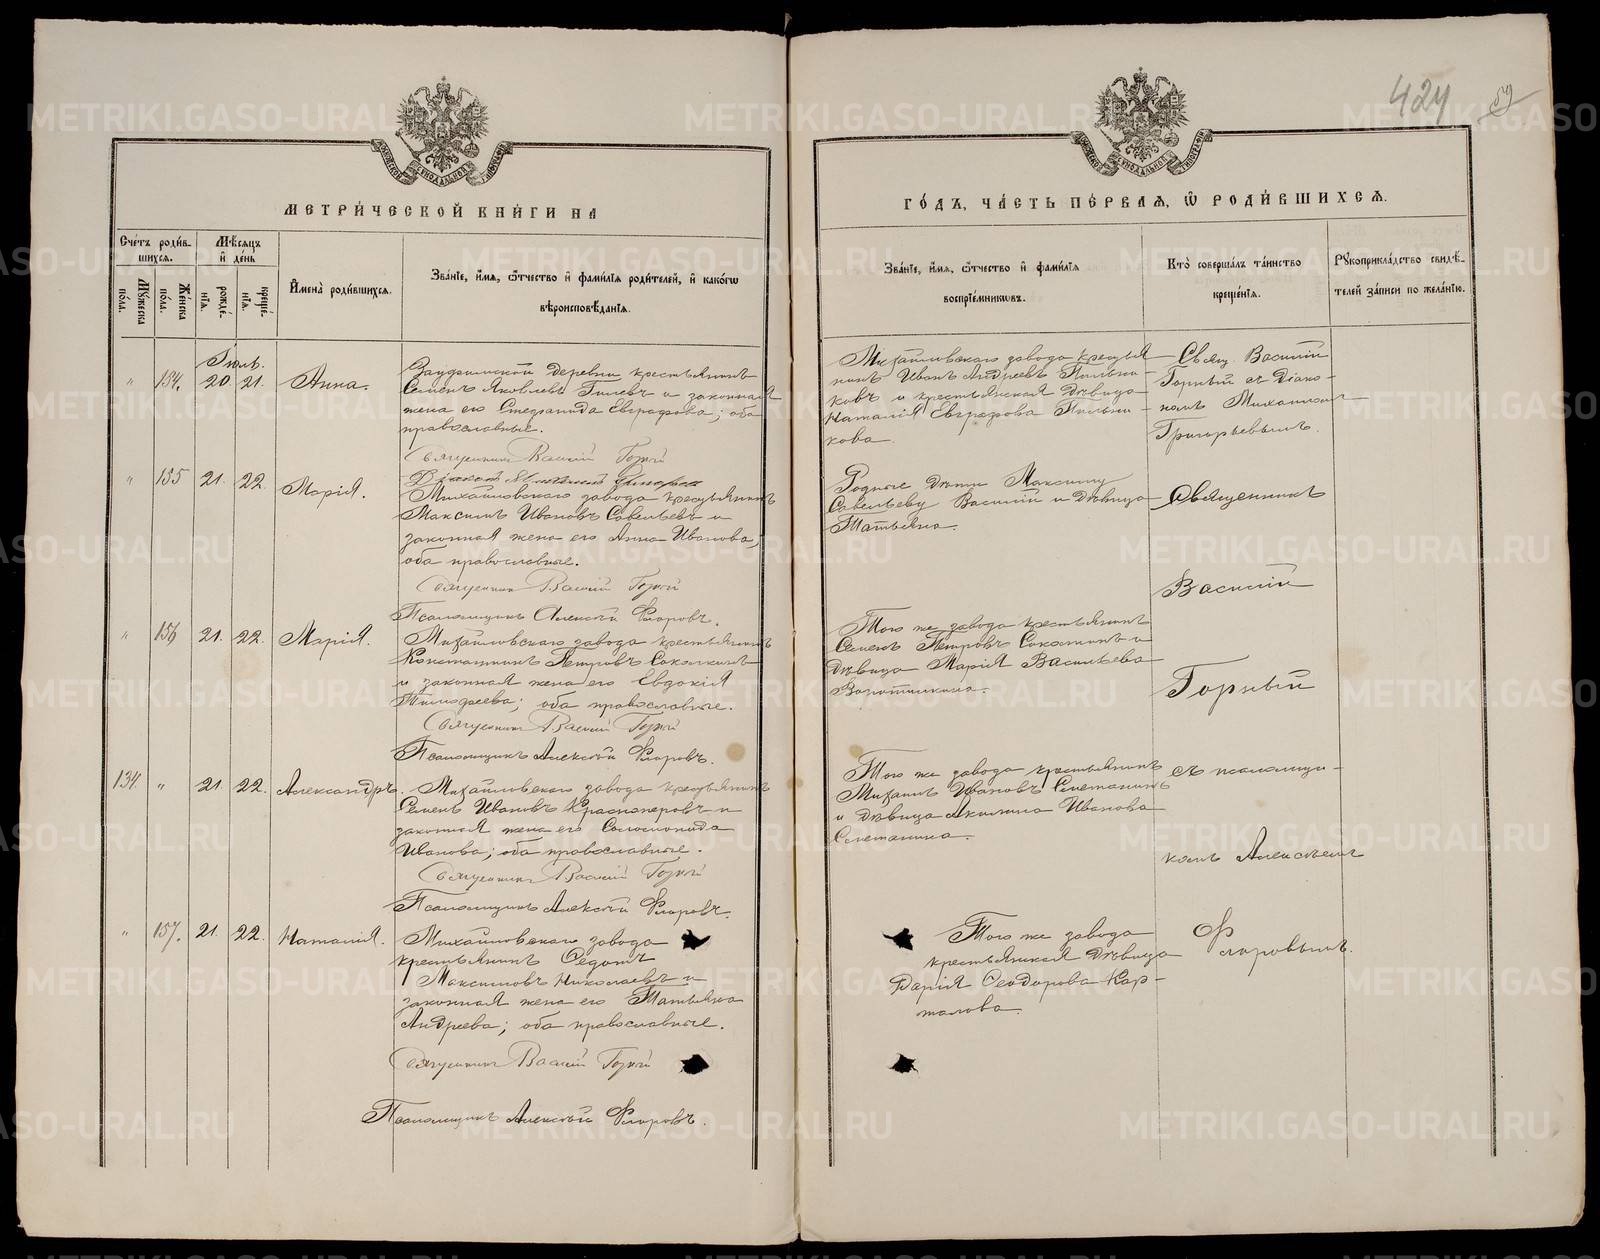 424 59
МЕТРИ́ЧЕСКОЙ КНИ́ГИ НА
ГО́ДЪ, ЧА́СТЬ ПЕ́РВАЯ, Ѽ РОДИ́ВШИХСЯ.
Сче́тъ роди́в-
шихся.
Мꙋ́жеска по́ла.
Же́нска по́ла.
Мѣ́сяцъ и҆ де́нь
рожде́-
нїя.
креще́-
нїя.
И҆мена̀ роди́вшихся.
Зва́нїе, и҆́мя, ѻ҆́тчество и҆ фами́лїя роди́телей, и҆ како́гѡ
вѣроисповѣ́данїя.
Зва́нїе, и҆́мя, ѻ҆́тчество и҆ фами́лїя
воспрїе́мникѡвъ.
Кто̀ соверша́лъ та́инство
креще́нїя.
Рꙋкоприкла́дство свидѣ́-
телей за́писи по жела́нїю.
Іюль.
" 154. 20. 21. Анна.
деревни крестьянинъ
Семенъ Яковлевъ Гилевъ и законная
жена его Степанида Евграфова; оба
православные.
Священникъ Василій Горный
Михайловскаго завода крестья-
нинъ Иванъ Андреевъ Пильни-
ковъ и крестьянская дѣвица
Наталія Евграфова Пильни-
кова.
Свящ. Василій
Горный съ Діако-
номъ Михаиломъ
Григорьевымъ.
" 155 21. 22. Марія.
Михайловскаго завода крестьянинъ
Максимъ Ивановъ Савельевъ и
законная жена его Анна Иванова,
оба православные.
Священникъ Василій Горный
Псаломщикъ Алексѣй Флоровъ.
Родные дѣти Максиму
Савельеву Василій и дѣвица
Татьяна.
Священникъ
Василій
Горный
" 156 21. 22. Марія.
Михайловскаго завода крестьянинъ
Константинъ Петровъ Соколкинъ
и законная жена его Евдокія
Тимофеева; оба православные.
Священникъ Василій Горный
Псаломщикъ Алексѣй Флоровъ.
Того же завода крестьянинъ
Семенъ Петровъ и
дѣвица Марія Васильева
134. " 21. 22. Александръ.
Михайловскаго завода крестьянинъ
Семенъ Ивановъ Красноперовъ и
законная жена его Соломонида
Иванова; оба православные.
Священникъ Василій Горный
Псаломщикъ Алексѣй Флоровъ.
Того же завода крестьянинъ
Михаилъ Ивановъ Сметанинъ
и дѣвица Акилина Иванова
Сметанина.
съ псаломщи-
комъ Алексѣемъ
Флоровымъ.
" 157. 21. 22. Наталія.
Михайловскаго завода
крестьянинъ Федотъ
Максимовъ Николаевъ и
законная жена его Татьяна
Андреева; оба православные.
Священникъ Василій Горный
Псаломщикъ Алексѣй Флоровъ.
Того же завода
крестьянская дѣвица
Дарія Феодорова Кар-
талова.
METRIKI.GASO-URAL.RU